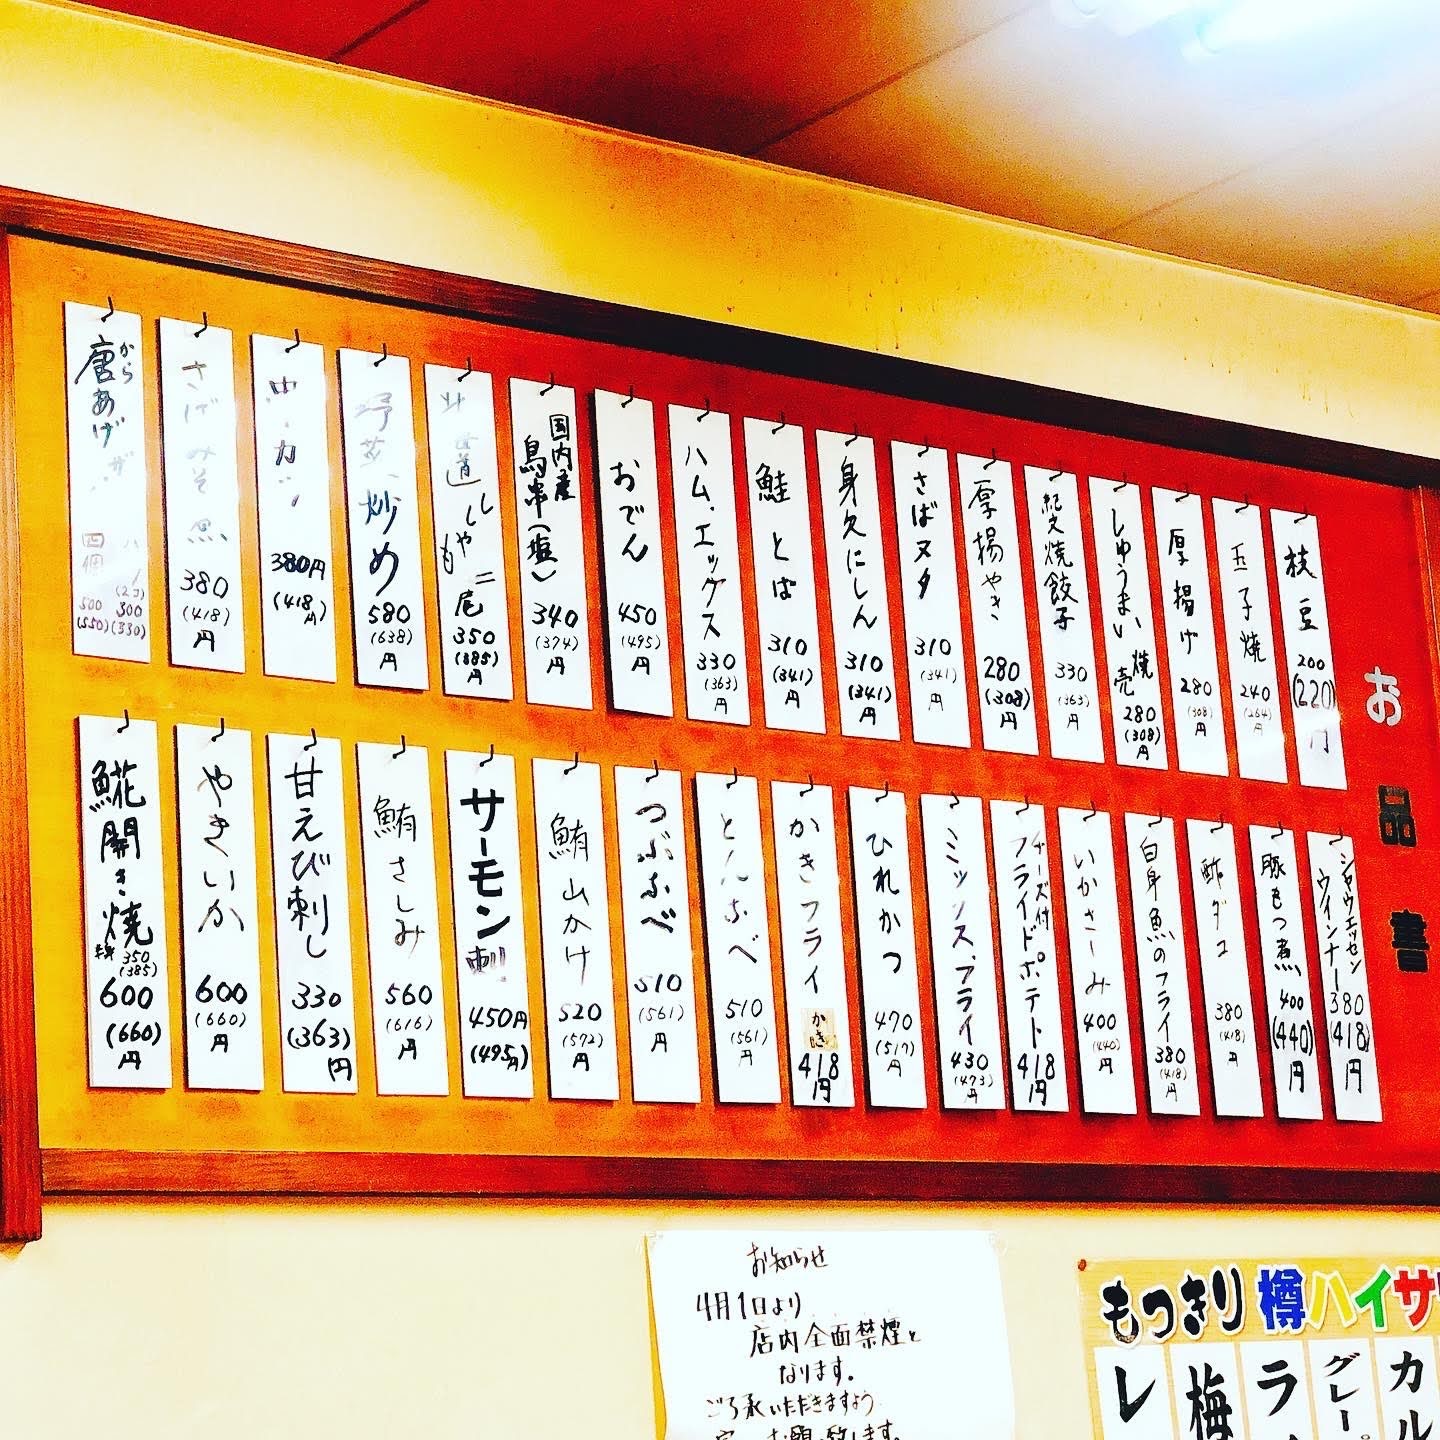 お品書
枝豆 200 (220) 円
玉子焼 240 (264) 円
厚揚げ 280 (308) 円
しゅうまい 焼売 280 (308) 円
焼餃子 330 (363) 円
厚揚やき 280 (308) 円
さばヌタ 310 (341) 円
身欠にしん 310 (341) 円
鮭とば 310 (341) 円
ハムエッグス 330 (363) 円
おでん 450 (495) 円
国内産 鳥串(塩) 340 (374) 円
北海道ししゃも 二尾 350 (385) 円
野菜炒め 580 (638) 円
380円 (418円)
380 (418) 円
唐あげ から
四個 500 (550)
(2コ) 300 (330)
シャウエッセン ウインナー 380 (418) 円
豚もつ煮 400 (440) 円
酢ダコ 380 (418) 円
白身魚のフライ 380 (418) 円
いかさしみ 400 (440) 円
チーズ付 フライドポテト 418円
ミックスフライ 430 (473) 円
ひれかつ 470 (517) 円
かきフライ かき 418円
とんぶべ 510 (561) 円
つぶぶべ 510 (561) 円
鮪山かけ 520 (572) 円
サーモン刺 450円 (495円)
鮪さしみ 560 (616) 円
甘えび刺し 330 (363) 円
やきいか 600 (660) 円
𩸽開き焼 半身 350 (385) 600 (660) 円
お知らせ
4月1日より
店内全面禁煙と
なります。
ご了承いただきますよう
お願い致します。
もっきり 樽ハイサ
レ
梅
ラ
グレー
カル